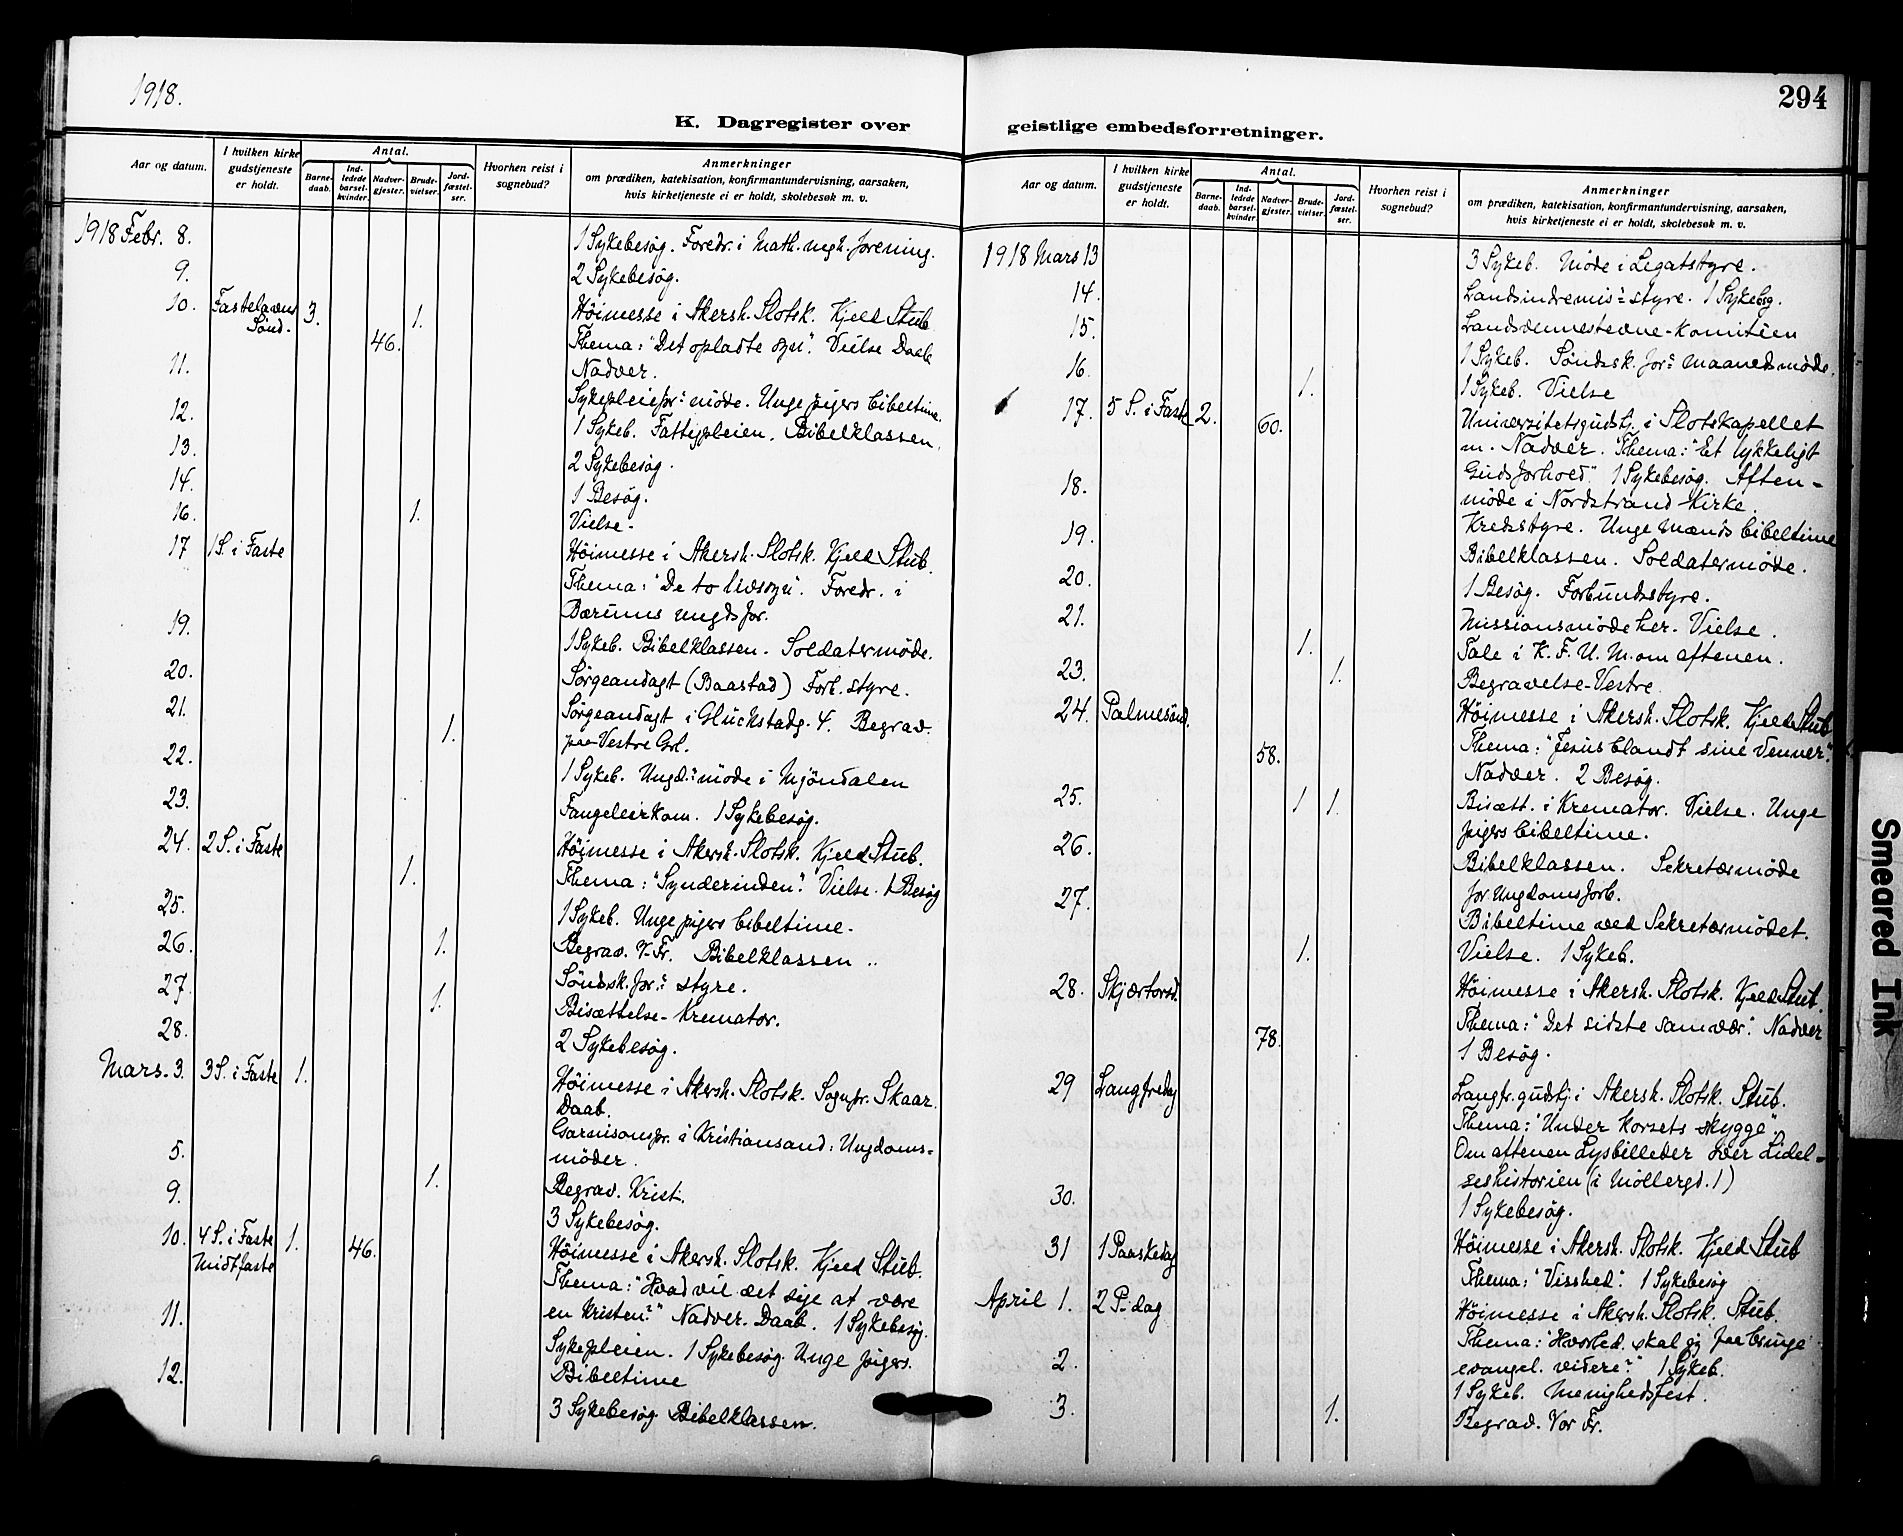 1918.
K. Dagregister over
Aar og datum.
I hvilken kirke gudstjeneste er holdt.
Antal.
Barne-daab.
Ind-ledede barsel-kvinder.
Nadver-gjester.
Brude-vielser.
Jord-fæstel-ser.
Hvorhen reist i sognebud?
Anmerkninger
om prædiken, katekisation, konfirmantundervisning, aarsaken,
hvis kirketjeneste ei er holdt, skolebesøk m. v.
1918 Febr. 8. 1 Sykebesøg. Foredr. i Math. ungd. forening.
9. 2 Sykebesøg.
10. Fastelavns 3. 1. Høimesse i Akersh. Slotsk. Kjeld Stub
Sønd. 46. Thema: "Det opladte syn". Vielse Daab
11. Nadver.
Sykepleiefor: møde. Unge pigers bibeltime.
12. 1 Sykeb. Fattigpleien. Bibelklassen.
13. 2 Sykebesøg.
14. 1 Besøg.
16. 1. Vielse.
17 1 S. i Faste Høimesse i Akersh. Slotsk. Kjeld Stub.
Thema: "De to livssyn". Foredr. i
Bærums ungdsfor.
19. 1 Sykeb. Bibelklassen. Soldatermøde.
20. Sørgeandagt (Baastad) Forb. styre.
21. Sørgeandagt i Glückstadg. 4. Begrav.
1. paa Vestre Grl.
22. 1 Sykeb. Ungd: møde i Mjöndalen
23. Fangeleirkom. 1 Sykebesøg.
24. 2 S. i Faste Høimesse i Akersh. Slotsk. Kjeld Stub.
1. Thema: "Synderinden". Vielse. 1 Besøg
25. 1 Sykeb. Unge pigers bibeltime.
26. 1. Begrav. V. Fr. Bibelklassen
27. Søndsk. for: styre.
1. Bisættelse-Kremator.
28. 2 Sykebesøg.
Mars. 3. 3 S. i Faste 1. Høimesse i Akersh. Slotsk. Sognpr. Skaar.
Daab.
5. Garnisonspr. i Kristiansand. Ungdoms-
møder.
9. 1. Begrav. Krist.
3 Sykebesøg.
10. 4 S. i Faste 1. 46. Høimesse i Akersh. Slotsk. Kjeld Stub.
Midtfaste Thema: "Hvad vil det sige at være
11. en kristen?" Nadver. Daab. 1 Sykebesøg.
Sykepleien. 1 Sykebesøg. Unge pigers.
12. Bibeltime
3 Sykebesøg Bibelklassen.
294
geistlige embedsforretninger.
Aar og datum.
I hvilken kirke gudstjeneste er holdt.
Antal.
Barne-daab.
Ind-ledede barsel-kvinder.
Nadver-gjester.
Brude-vielser.
Jord-fæstel-ser.
Hvorhen reist i sognebud?
Anmerkninger
om prædiken, katekisation, konfirmantundervisning, aarsaken,
hvis kirketjeneste ei er holdt, skolebesøk m. v.
1918 Mars 13 3 Sykeb. Møde i Legatstyre.
14. Landsindremis: styre. 1 Sykebsg.
15. Landsvennestevne-komitéen
16. 1 Sykeb. Søndssk. for: maanedsmøde.
1. 1 Sykeb. Vielse
17. 5 S. i Faste 2. 60. Universitetsgudstj. i Slotskapellet
m. Nadver. Thema: "Et lykkeligt
18. Gudsforhold" 1 Sykebesøg. Aften-
møde i Nordstrand Kirke.
19. Kredsstyre. Unge Mænds bibeltime
Bibelklassen. Soldatermøde.
20. 1 Besøg. Forbundsstyre.
21. Missionsmøde her. Vielse.
1. Tale i K. F. U. M. om aftenen.
23. 1. Begravelse-Vestre
24. Palmesönd. Høimesse i Akersh. Slotsk. Kjeld Stub
58. Thema: "Jesus blandt sine Venner".
Nadver. 2 Besøg.
25. 1 1. Bisætt. i Kremator. Vielse. Unge
pigers bibeltime.
26. Bibelklassen. Sekretærmøde
for Ungdomsforb.
27. Bibeltime ved Sekretærmødet.
1. Vielse. 1 Sykeb.
28. Skjærtorsd. Høimesse i Akersh. Slotsk. Kjeld Stub.
78. Thema: "Det sidste samvær". Nadver
1 Besøg.
29 Langfredag Langfr. gudstj. i Akersh. Slotsk. Stub.
Thema: "Under Korsets skygge".
Om aftenen Lysbilleder over Lidel-
seshistorien (i Møllergd. 1)
30. 1 Sykebesøg.
31 1 Paaskedag Høimesse i Akersh. Slotsk. Kjeld Stub
Thema: "Visshed". 1 Sykebesøg
April 1. 2 P. dag Høimesse i Akersh. Slotsk. Stub.
Thema: "Hvorled. skal jeg faa bringe
2. evangel. videre?" 1 Sykeb.
1 Sykeb. Menighedsfest.
3. 1. Begrav. Vor Fr.
Smeared Ink